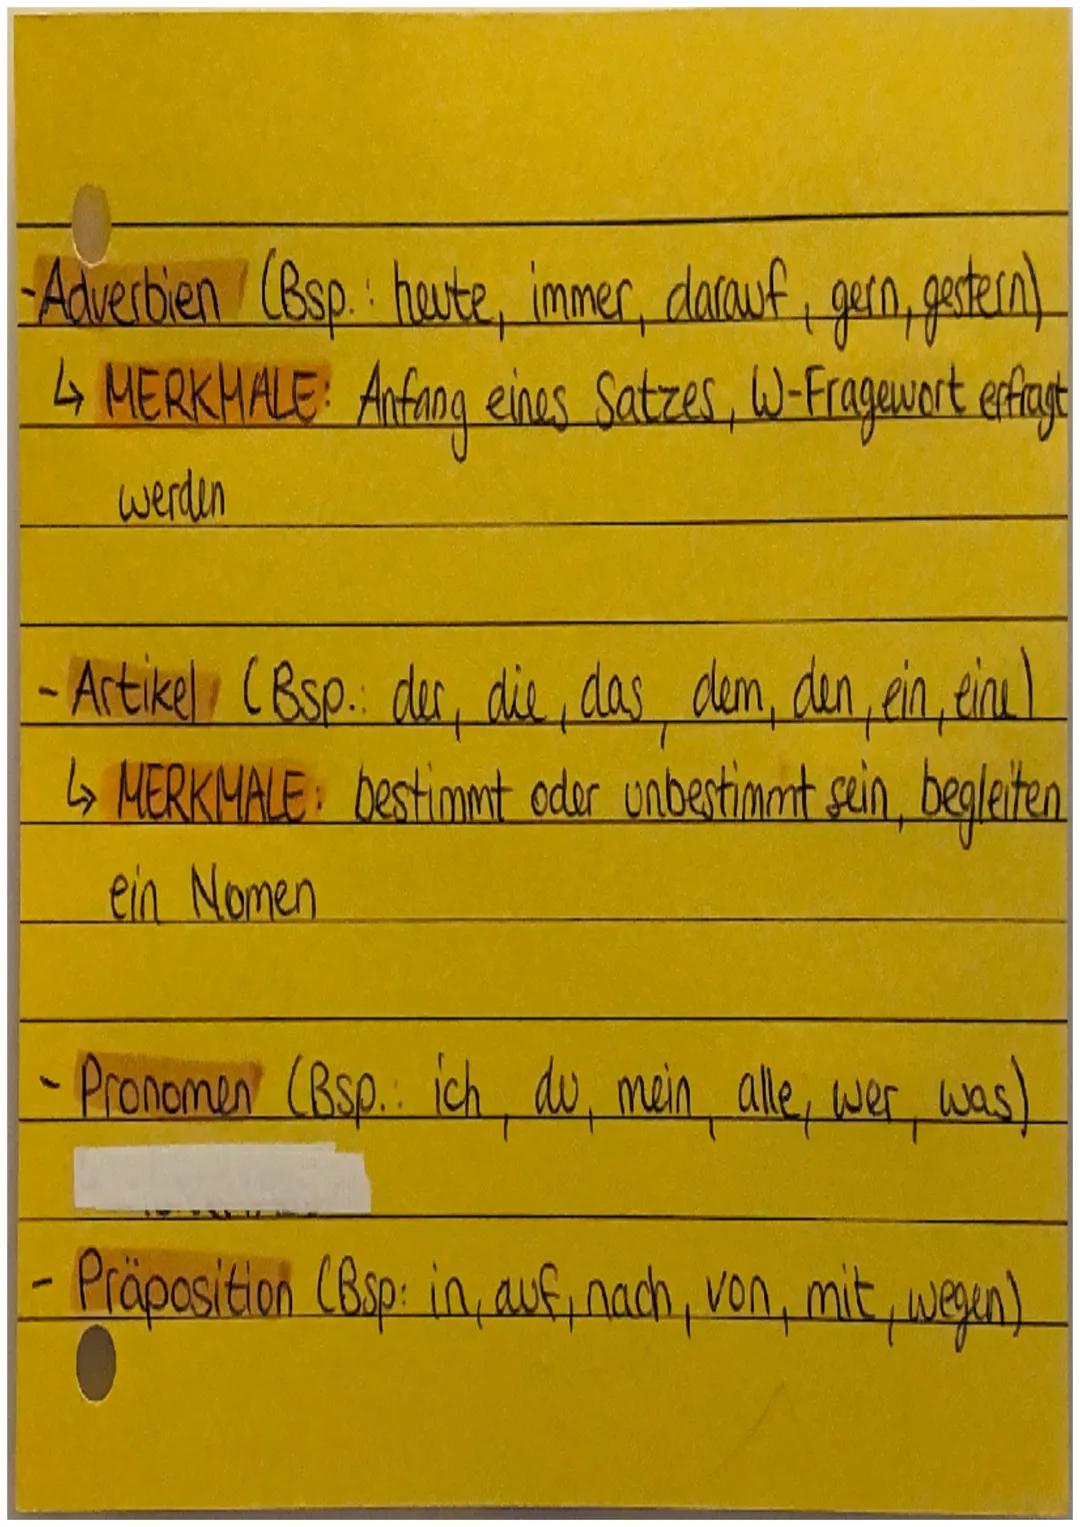 - Adverbien (Bsp.: heute, immer, darauf, gern, gestern)
↳ MERKMALE: Anfang eines Satzes, W-Fragewort erfragt
werden
- Artikel (Bsp.: der, die, das, dem, den, ein, eine)
↳ MERKMALE: bestimmt oder unbestimmt sein, begleiten
ein Nomen
- Pronomen (Bsp.: ich, du, mein, alle, wer, was)
- Präposition (Bsp: in, auf, nach, von, mit, wegen)